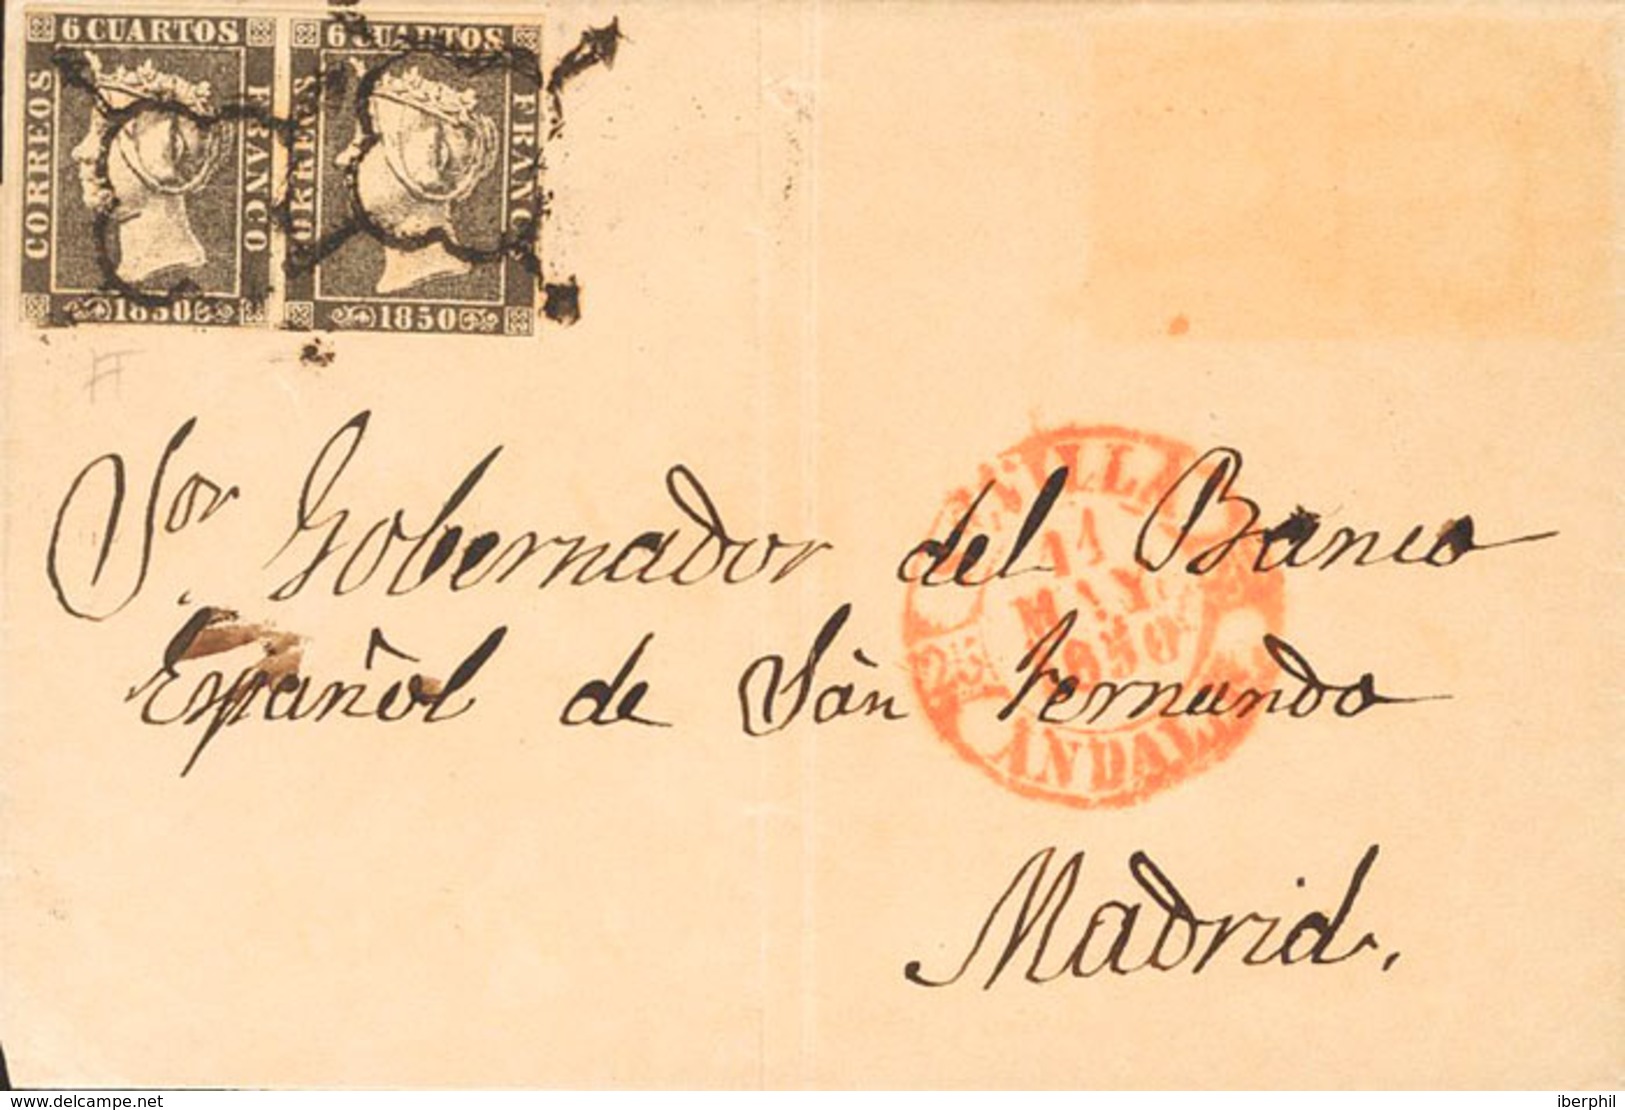 6 CUARTOS 6 CUARTOS
CORREOS FRANCO CORREOS FRANCO
1850 1850
Sor Gobernador del Banco
Español de San Fernando
Madrid.
SEVILLA
11
MAY.
1850
25
ANDAL
www.delcampe.net
iberphil